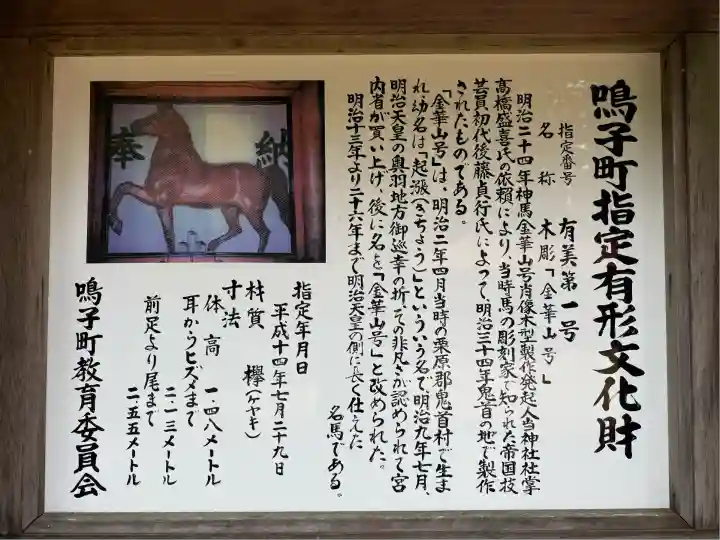 鳴子町指定有形文化財
指定番号　有美第一号
名　称　木彫「金華山号」
明治二十四年神馬金華山号肖像木型製作発起人当神社社掌
高橋盛喜氏の依頼により、当時馬の彫刻家で知られた帝国技
芸員初代後藤貞行氏によって、明治三十四年鬼首の地で製作
されたものである。
「金華山号」は、明治二年四月当時の栗原郡鬼首村で生ま
れ、幼名は「起漲(きちょう)」といういう名で明治九年七月、
明治天皇の奥羽地方御巡幸の折、その非凡さが認められて宮
内省が買い上げ、後に名を「金華山号」と改められた。
明治十三年より二十六年まで明治天皇の側に長く仕えた
名馬である。
奉
納
指定年月日
平成十四年七月二十九日
材質　欅(ケヤキ)
寸法
体　高　一・四八メートル
耳からヒズメまで
二・一三メートル
前足より尾まで
二・五五メートル
鳴子町教育委員会